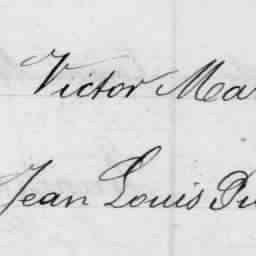 Victor Ma
Jean Louis Du